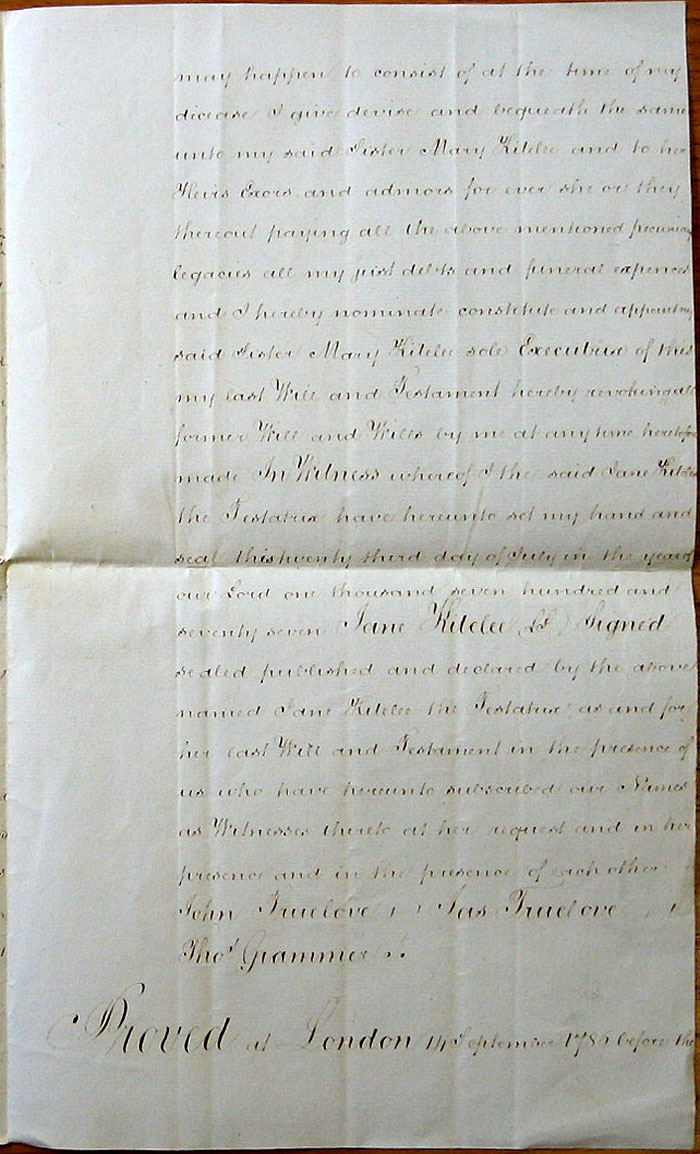 may happen to consist of at the time of my
decease I give devise and bequeath the same
unto my said Sister Mary Kitelee and to her
Heirs Exors and admors for ever she or they
thereout paying all the above mentioned pecuniary
legacies all my just debts and funeral expences
and I hereby nominate constitute and appoint my
said Sister Mary Kitelee sole Executrix of this
my last Will and Testament hereby revoking all
former Will and Wills by me at any time heretofore
made In Witness whereof I the said Jane Kitelee
the Testatrix have hereunto set my hand and
seal this twenty third day of July in the year of
our Lord one thousand seven hundred and
seventy seven Jane Kitelee (LS) Signed
sealed published and declared by the above
named Jane Kitelee the Testatrix as and for
her last Will and Testament in the presence of
us who have hereunto subscribed our Names
as Witnesses thereto at her request and in her
presence and in the presence of each other
John Truelove Jas Truelove
Thos Grammer
Proved at London 14 September before the